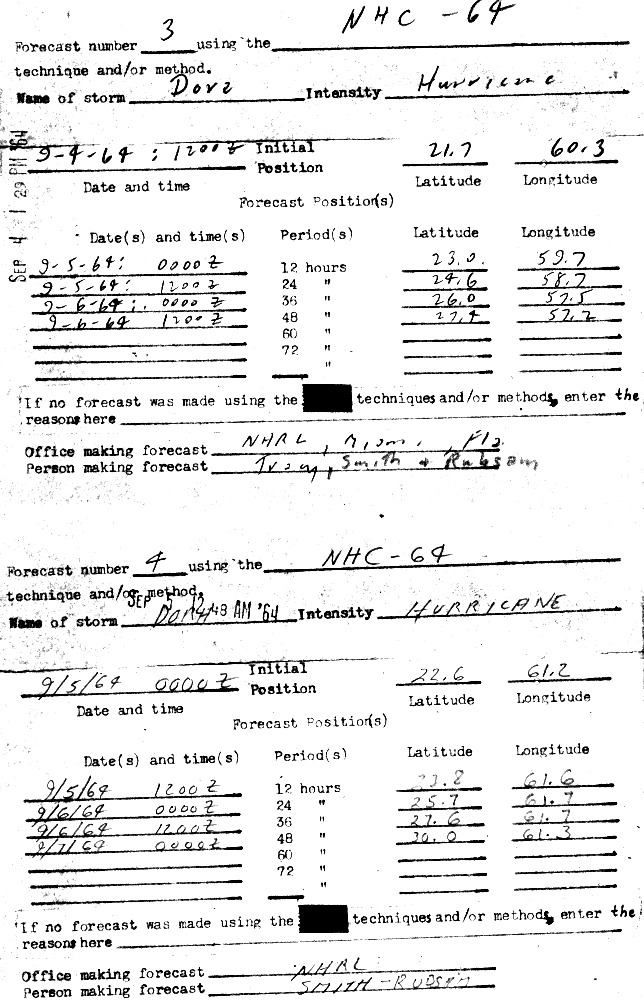 Forecast number 3 using the NHC - 64
technique and/or method.
Name of storm Dora Intensity Hurricane
SEP 4 1 29 PM '64
9-4-64 : 1200Z Initial Position 21.7 60.3
Date and time Latitude Longitude
Forecast Position(s)
Date(s) and time(s) Period(s) Latitude Longitude
9-5-64: 0000Z 12 hours 23.0 59.7
9-5-64: 1200Z 24 " 24.6 58.7
9-6-64: 0000Z 36 " 26.0 57.5
9-6-64 1200Z 48 " 27.4 57.2
60 "
72 "
"
If no forecast was made using the techniques and/or methods, enter the
reasons here
Office making forecast NHRL, Miami, Fla.
Person making forecast Smith +
Forecast number 4 using the NHC-64
technique and/or method.
SEP 5 48 AM '64
Name of storm DORA Intensity HURRICANE
9/5/64 0000Z Initial Position 22.6 61.2
Date and time Latitude Longitude
Forecast Position(s)
Date(s) and time(s) Period(s) Latitude Longitude
9/5/64 1200Z 12 hours 23.8 61.6
9/6/64 0000Z 24 " 25.7 61.7
9/6/64 1200Z 36 " 27.6 61.7
9/7/64 0000Z 48 " 30.0 61.3
60 "
72 "
"
If no forecast was made using the techniques and/or methods, enter the
reasons here
Office making forecast NHRL
Person making forecast SMITH -